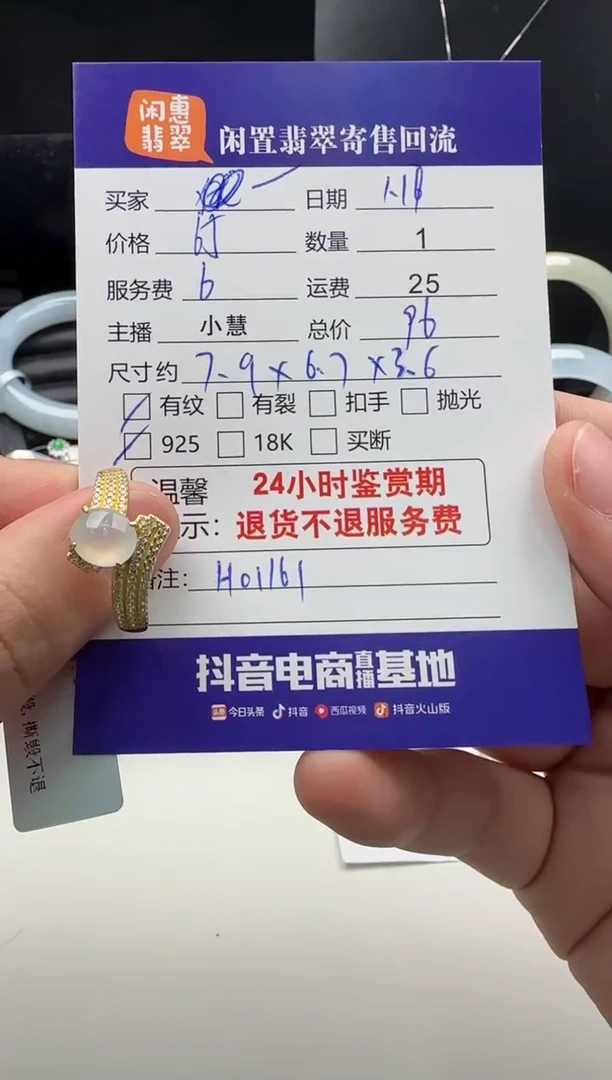 闲惠
翡翠
闲置翡翠寄售回流
买家 日期 1.18
价格 65 数量 1
服务费 6 运费 25
主播 小慧 总价 96
尺寸约 7.9x6.7x3.6
有纹 有裂 扣手 抛光
925 18K 买断
温馨 24小时鉴赏期
示: 退货不退服务费
注: H01161
抖音电商直播基地
头条 今日头条 抖音 西瓜视频 抖音火山版
撕毁不退